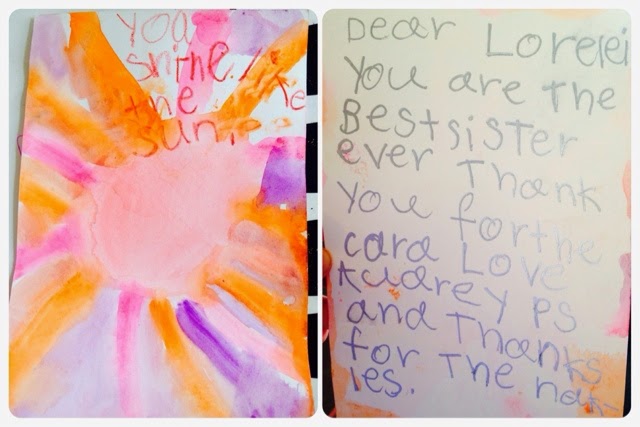 You
shine.
the
sun.
Dear Lorelei
You are The
Best sister
ever Thank
You for the
card Love
Audrey PS
and Thanks
for The nak-
les.